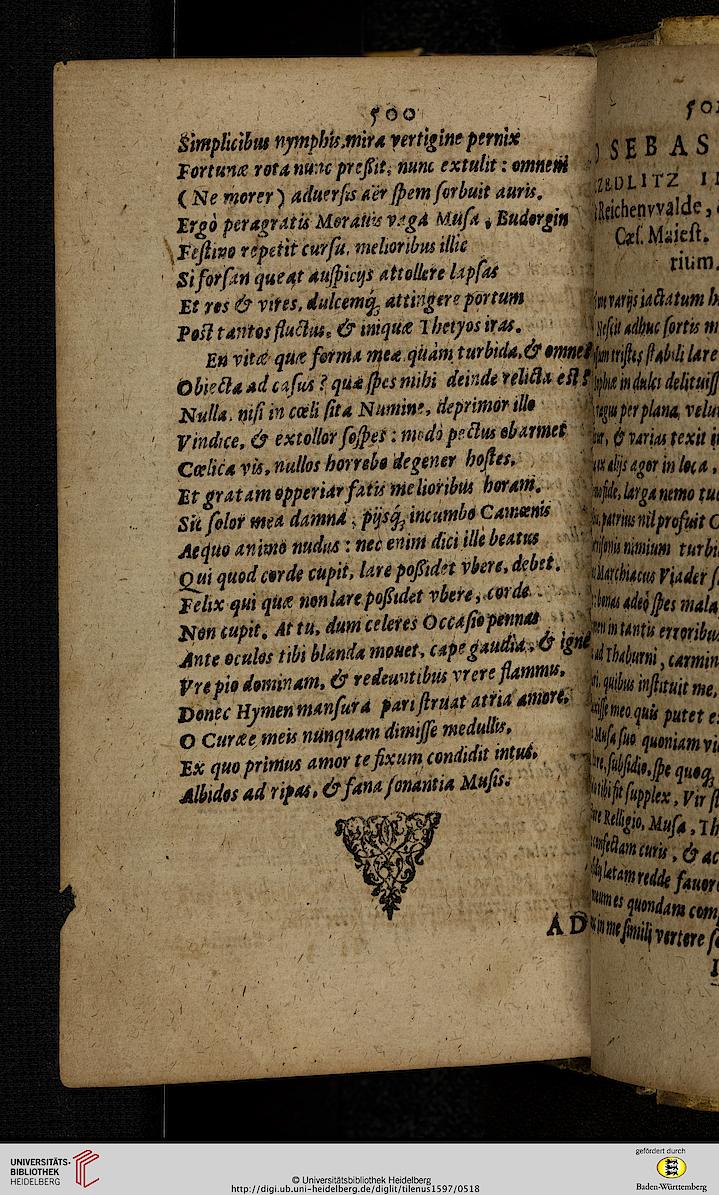 500
Simplicibus nymphis.mira vertigine pernix
Fortunæ rota nunc preßit, nunc extulit : omnem
( Ne morer ) aduersis aër spem sorbuit auris.
Ergò peragratis Morauis vaga Musa , Budorgin
Festino repetit cursu, melioribus illic
Si forsan queat auspicijs attollere lapsas
Et res & vires, dulcemq́; attingere portum
Post tantos fluctus, & iniquæ Thetyos iras.
En vitæ quæ forma meæ quàm turbida, & omnes
Obiecta ad casus ? quæ spes mihi deinde relicta est ?
Nulla, nisi in cœli sita Numine, deprimor illo
Vindice, & extollor sospes : modò pectus obarmet
Cœlica vis, nullos horrebo degener hostes,
Et gratam opperiar fatis melioribus horam.
Sic solor mea damna , pijsq́; incumbo Camœnis
Aequo animo nudus : nec enim dici ille beatus
Qui quod corde cupit, lare poßidet vbere, debet.
Felix qui quæ non lare poßidet vbere, corde
Non cupit. At tu, dum celeres Occasio pennas
Ante oculos tibi blanda mouet, cape gaudia, & igne
Vre pio dominam, & redeuntibus vrere flammis,
Donec Hymen mansura pari struat atria amore.
O Curæe meis nunquam dimisse medullis,
Ex quo primus amor te fixum condidit intus,
Albidos ad ripas, & fana sonantia Musis.
AD
SEBAS
ZEDLITZ
Reichenvvalde,
Cæs. Maiest.
rium.
varijs iactatum
Nescit adhuc sortis
tristes stabili lare
in dulci delituiss
per plana, velu
& varias texit
alijs agor in loca ,
larga nemo
patrius nil profuit
nimium turbi
Marchiacus Viader
bonas adeò spes mala
in tantis erroribus
Thaburni , carmin
quibus instituit me,
meo quis putet
Musa suo quoniam
subsidio, spe quoq;
sit supplex, Vir
Relligio, Musa , Th
curis , & ac
latam redde fauore
es quondam com
in me simili vertere
UNIVERSITÄTS-
BIBLIOTHEK
HEIDELBERG
© Universitätsbibliothek Heidelberg
http://digi.ub.uni-heidelberg.de/diglit/tilenus1597/0518
gefördert durch
Baden-Württemberg